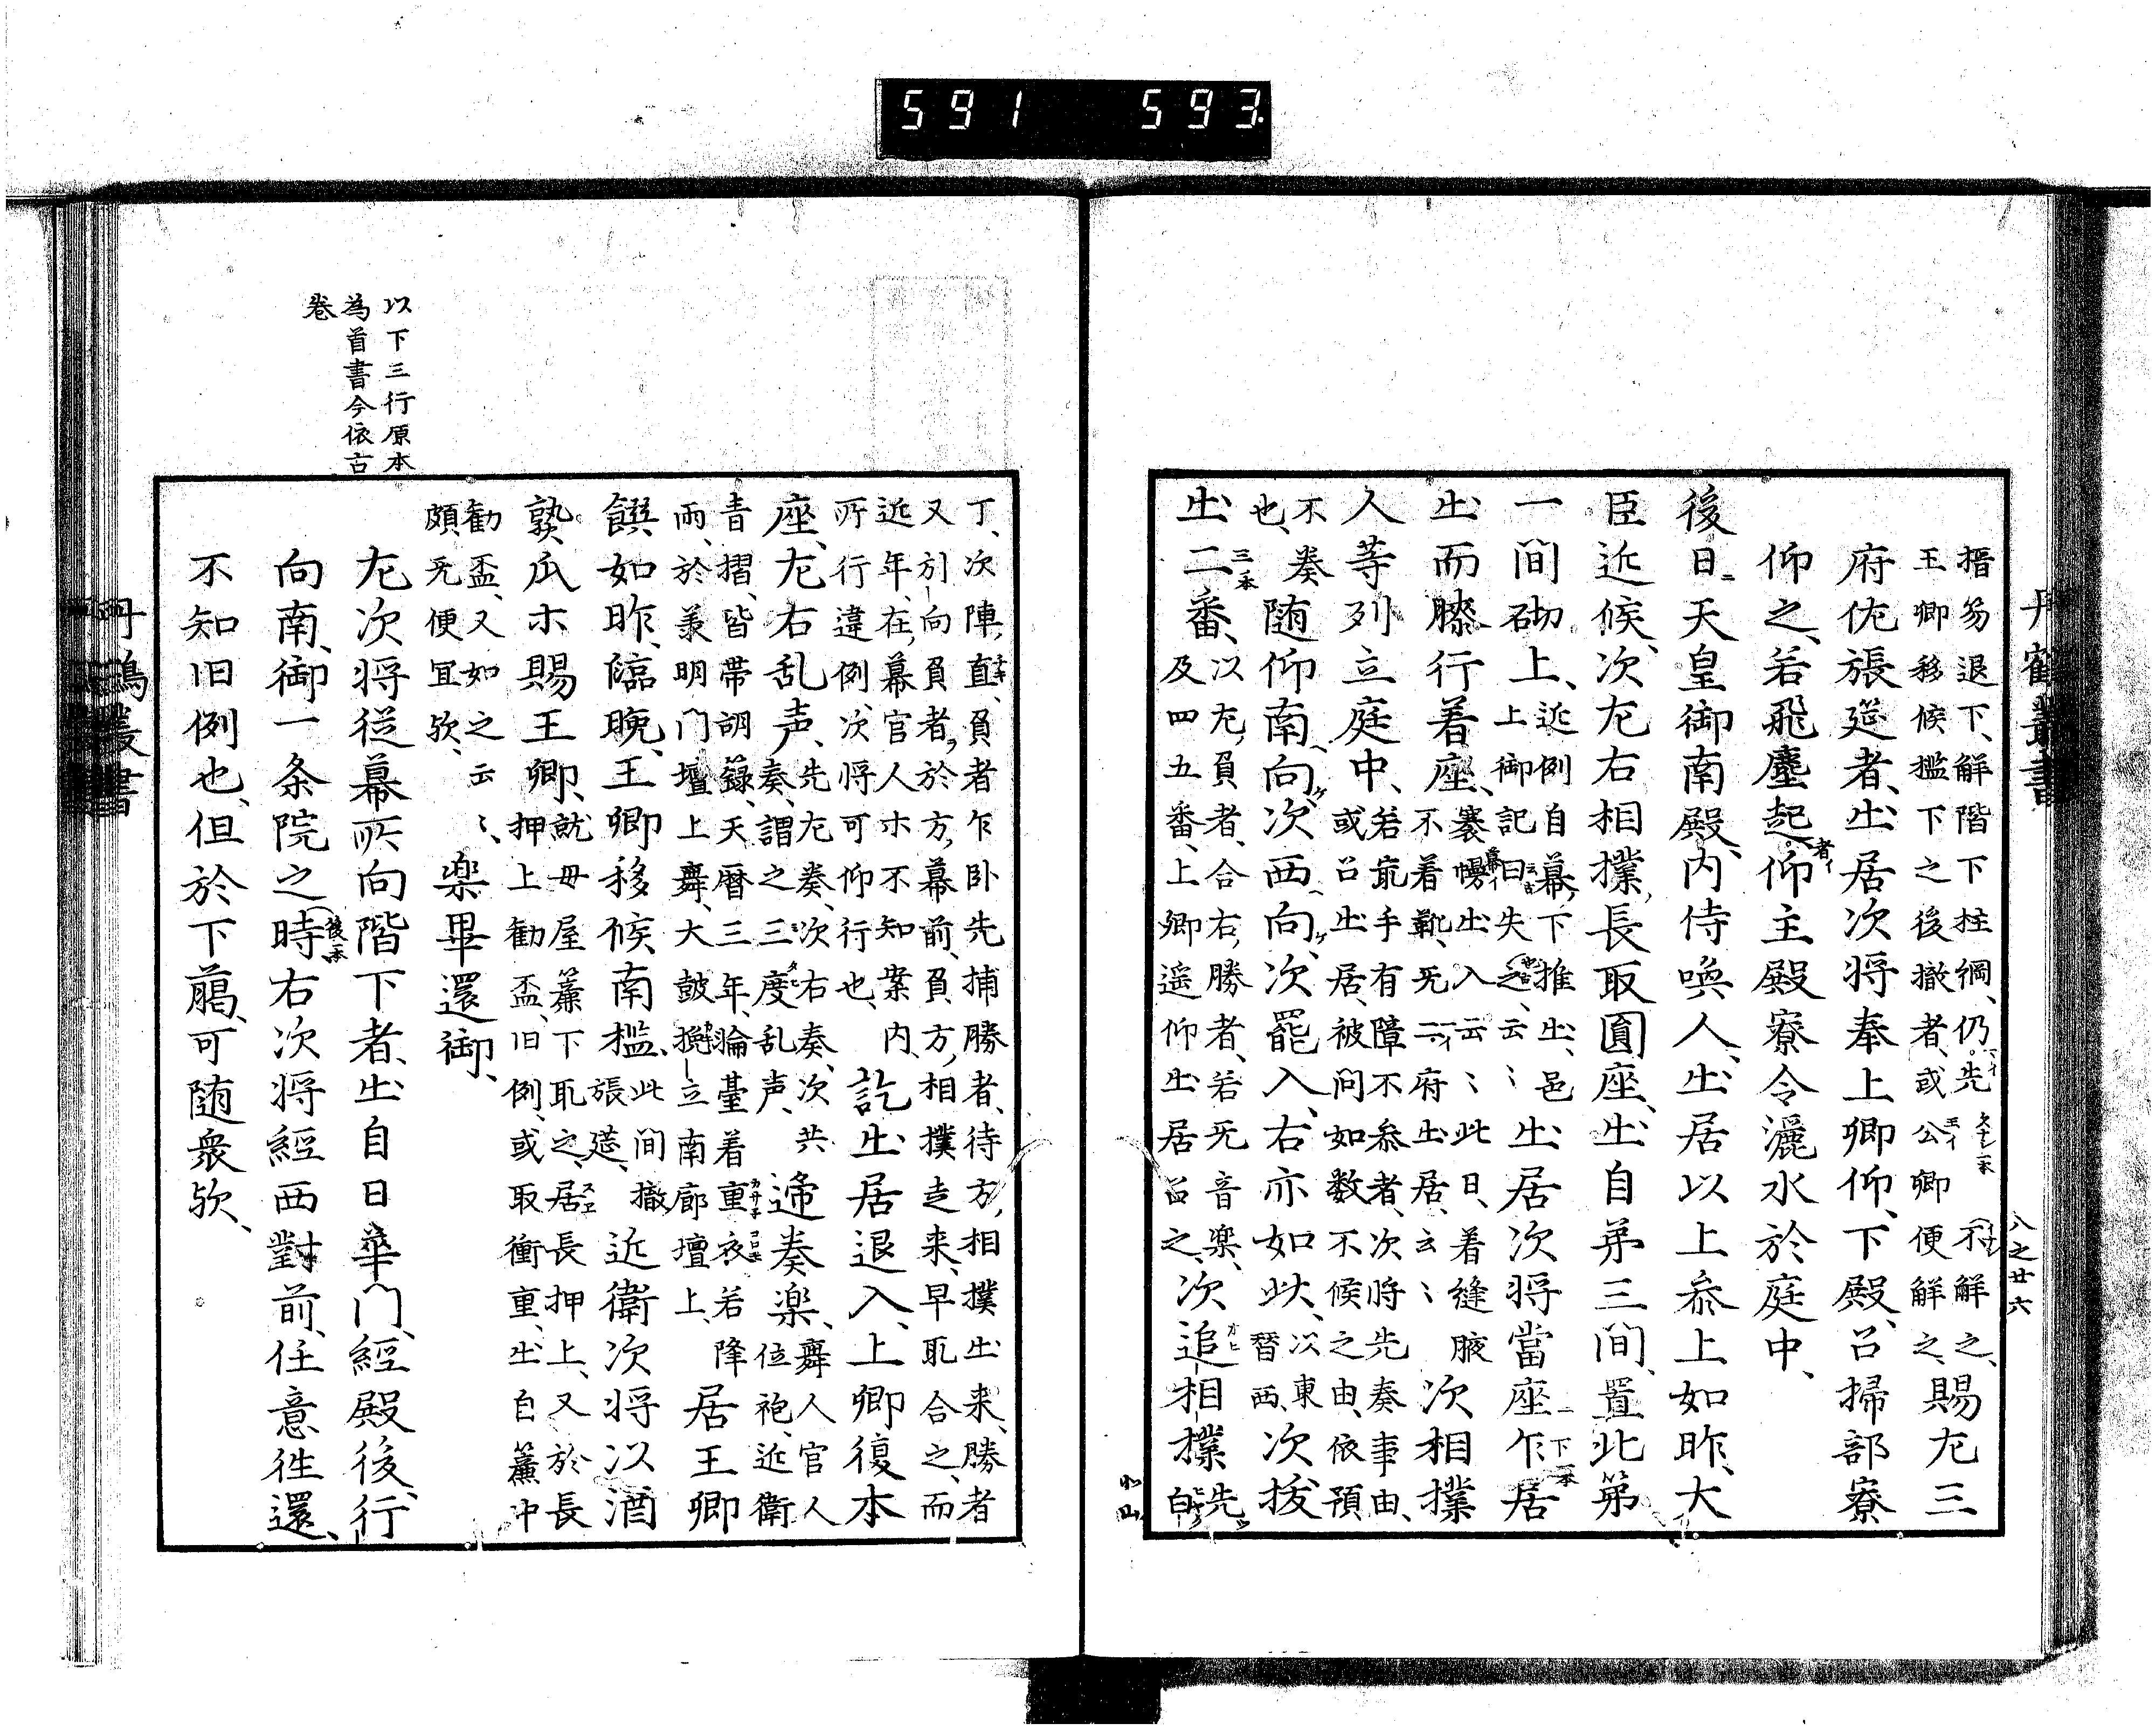 591 593
丹鶴叢書
八之廿六
搢笏退下、解階下柱綱、仍先不解之、
王卿移候檻下之後撤者、或公卿便解之、賜左三
府佐張莚者、出居次将奉上卿仰、下殿、召掃部寮
仰之、若飛塵起、仰主殿寮令灑水於庭中、
後日、天皇御南殿、内侍喚人、出居以上参上如昨、大
臣近候、次左右相撲長取圓座、出自第三間、置此第
一間砌上、近例自幕下推出、邑
上御記曰失之、云〻出居次将當座乍居
出而膝行着座、褰幔出入云〻此日、着縫腋
不着靴、無二府出居、云〻次相撲
人等列立庭中、若最手有障不参者、次将先奏事由、
或召出居、被問如数不候之由、依預
不奏
也、随仰南向、次西向、次罷入、右亦如此、次東
替西、次抜
出二番、以左負者、合右勝者、若無音楽、
及四五番、上卿遥仰出居召之、次追相撲先
白
丁、次陣直、負者乍臥先捕勝者、待方相撲出来、勝者
又別向負者、於方幕前、負方相撲走来、早取合之、而
近年、在幕官人朩不知案内、
所行違例、次将可仰行也、訖出居退入、上卿復本
座、左右乱声、先左奏、次右奏、次共
奏、謂之三度乱声、遞奏楽、舞人官人
位袍、近衛
青摺、皆帯胡籙、天暦三年、輪臺着重衣、若降
雨、於義明門壇上舞、大鼓撾立南廊壇上、居王卿
饌如昨、臨晩、王卿移候南檻、此間撤
張莚、近衛次将以酒
熟瓜朩賜王卿、就母屋簾下取之、居長押上、又於長
押上勧盃、旧例、或取衝重、出自簾中
勧盃、又如之云〻、
頗無便宜歟、楽畢還御、
左次将従幕所向階下者、出自日華門、経殿後、行
向南、御一条院之時、右次将經西對前、任意徃還、
不知旧例也、但於下﨟、可随衆歟、
以下三行原本
為首書今依古
巻
丹鶴叢書